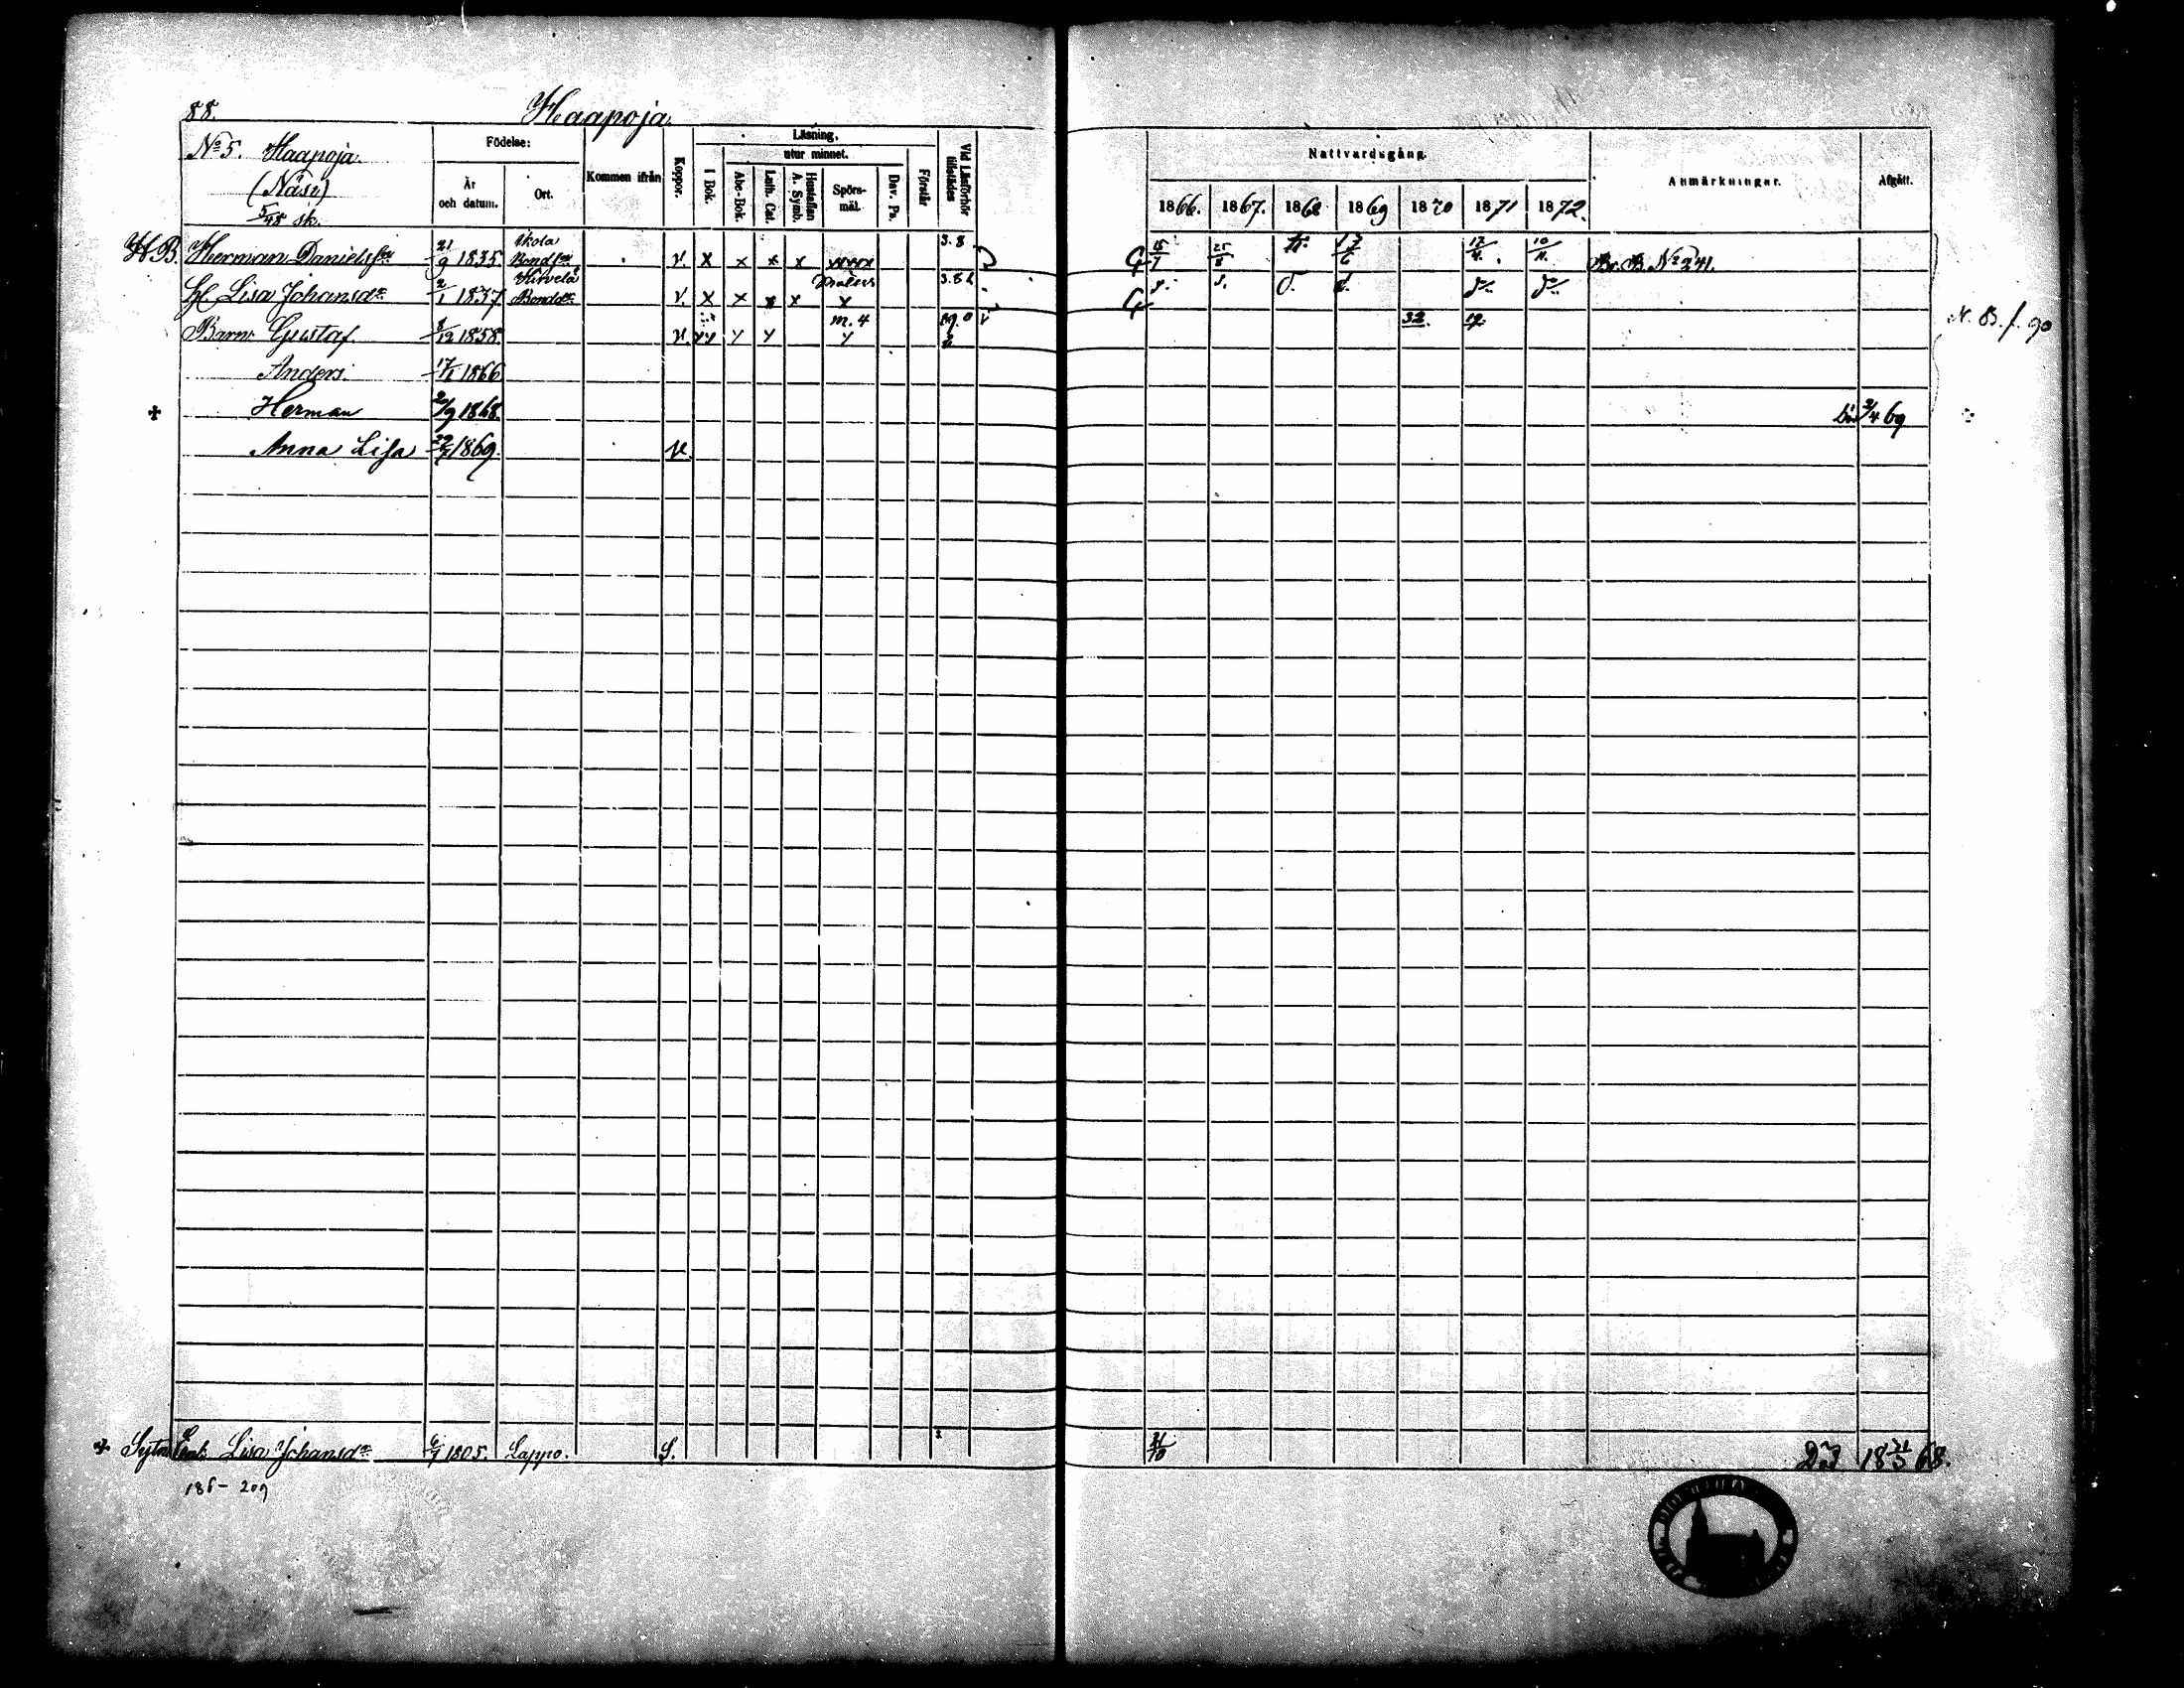 88. Haapoja.
No 5. Haapoja.
(Näsi)
5/48 sk.
Födelse:
År och datum.
Ort.
Kommen ifrån
Koppor.
Läsning,
utur minnet.
I Bok.
Abc-Bok.
Luth. Cat.
Hustaflan A. Symb.
Spörsmål.
Dav. Ps.
Förstår
Vid Läsförhör tillstädes
Nattvardsgång.
1866. 1867. 1868 1869 1870 1871 1872.
Anmärkningar.
Afgått.
H.B. Herman Danielsson 21/9 1835 Bondson v. x x x x xxxx 3.8 15/7 25/8 17/6 17/4. 10/11. Br. B. No 241.
H Lisa Johansdr 2/1 1837 Hirvelä Bonddr v. x x x x x 3.8
Barn: Gustaf. 8/12 1858 v. yy y y m. 4 y 32. 19. N. B. f. 90
Anders. 17/1 1866
+ Herman 21/9 1868. 2/4 69
Anna Lisa 29/7 1869. v.
+ Lisa Johansdr 6/7 1805. Lappo. S. 21/10 Död 18 21/5 68.
188 - 209